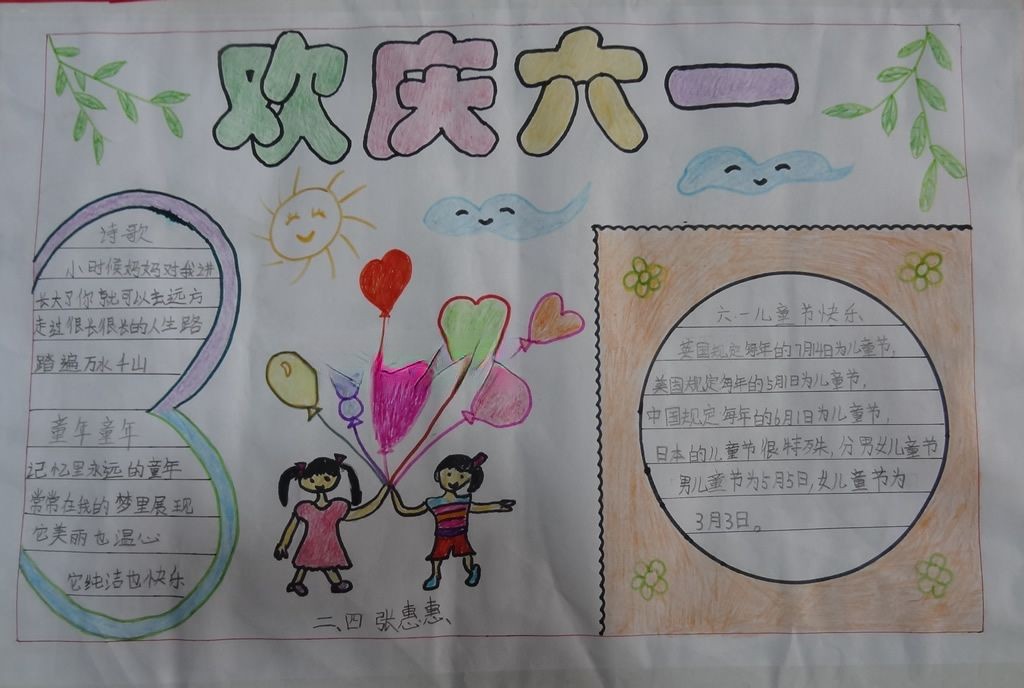 欢庆六一
诗歌
小时候妈妈对我讲
长大了你就可以去远方
走过很长很长的人生路
踏遍万水千山
童年童年
记忆里永远的童年
常常在我的梦里展现
它美丽也温心
它纯洁也快乐
六.一儿童节快乐
英国规定每年的7月14日为儿童节,
美国规定每年的5月1日为儿童节,
中国规定每年的6月1日为儿童节,
日本的儿童节很特殊,分男女儿童节
男儿童节为5月5日,女儿童节为
3月3日。
二、四 张惠惠